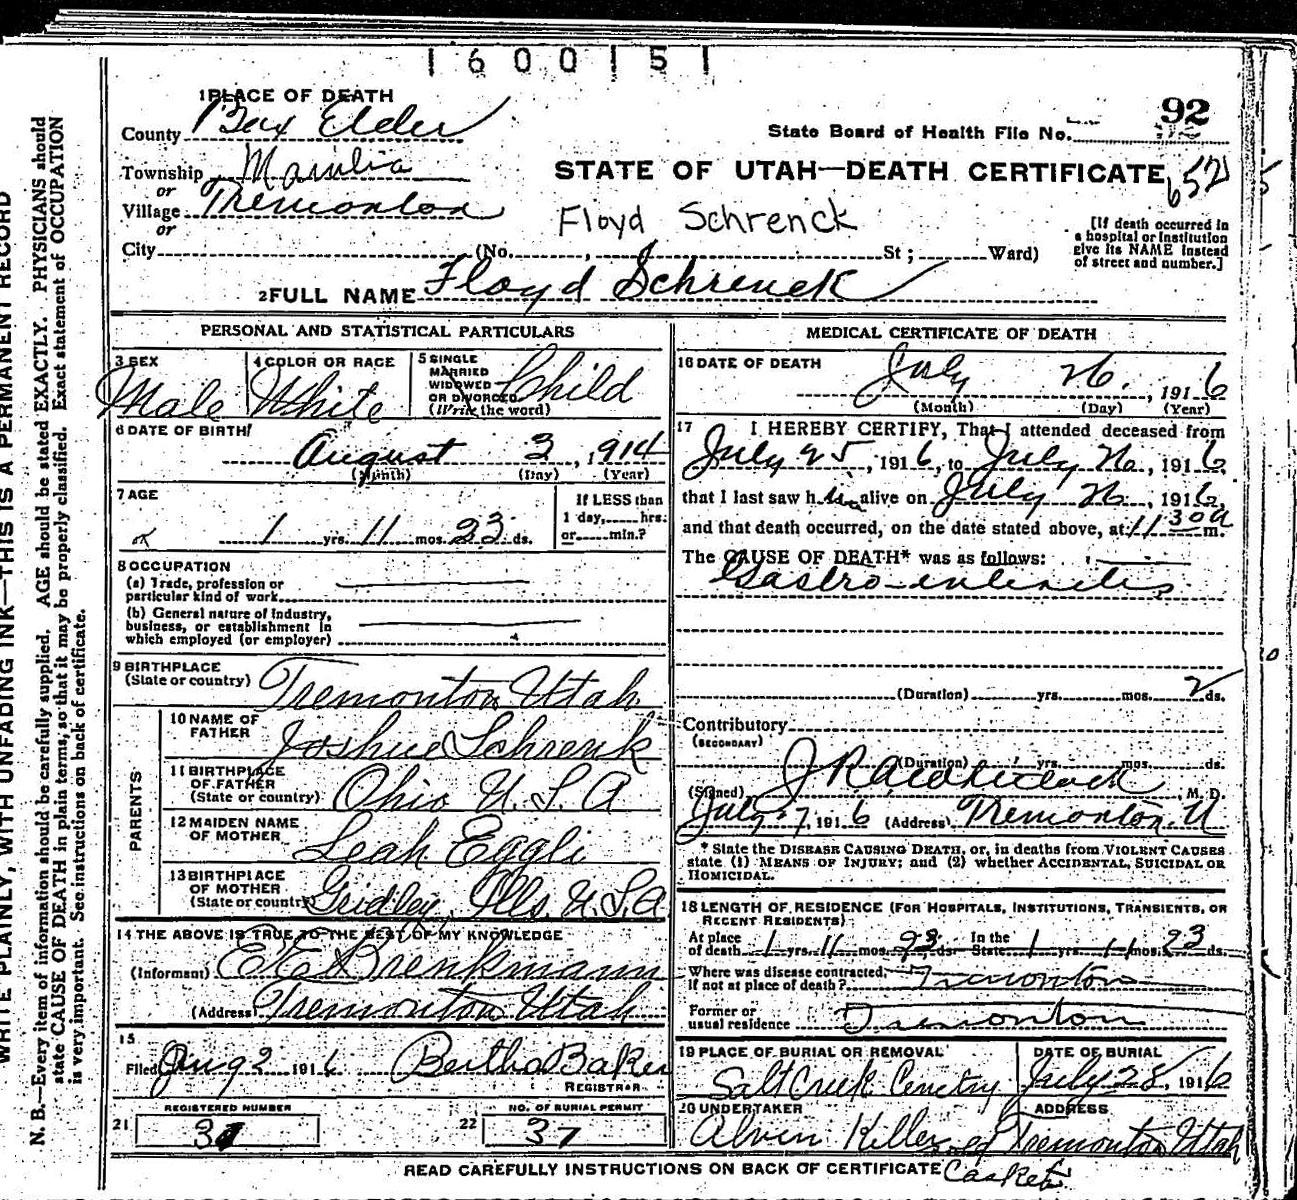 1600151
1 PLACE OF DEATH
County Box Elder
92
State Board of Health File No.
Township
STATE OF UTAH—DEATH CERTIFICATE
652
or
Village Tremonton
Floyd Schrenck
or
City (No. , St ; Ward)
[If death occurred in a hospital or institution give its NAME instead of street and number.]
2 FULL NAME Floyd Schrenck
PERSONAL AND STATISTICAL PARTICULARS
3 SEX Male
4 COLOR OR RACE White
5 SINGLE MARRIED WIDOWED OR DIVORCED (Write the word) Child
6 DATE OF BIRTH
August 3, 1914
(Month) (Day) (Year)
7 AGE
1 yrs. 11 mos. 23 ds.
If LESS than 1 day, hrs. or min.?
8 OCCUPATION
(a) Trade, profession or particular kind of work
(b) General nature of Industry, business, or establishment in which employed (or employer)
9 BIRTHPLACE (State or country) Tremonton Utah
PARENTS
10 NAME OF FATHER Joshue Schrenk
11 BIRTHPLACE OF FATHER (State or country) Ohio U.S.A
12 MAIDEN NAME OF MOTHER Leah Eggli
13 BIRTHPLACE OF MOTHER (State or country) Gridley, Ills. U.S.A
14 THE ABOVE IS TRUE TO THE BEST OF MY KNOWLEDGE
(Informant) E E Brenkmann
(Address) Tremonton Utah
15
Filed Aug 2 1916 Bertha Baker
REGISTRAR
REGISTERED NUMBER
21 37
NO. OF BURIAL PERMIT
22 37
MEDICAL CERTIFICATE OF DEATH
16 DATE OF DEATH
July 26, 1916
(Month) (Day) (Year)
17 I HEREBY CERTIFY, That I attended deceased from
July 25, 1916, to July 26, 1916
that I last saw him alive on July 26, 1916,
and that death occurred, on the date stated above, at 11 30 a m.
The CAUSE OF DEATH* was as follows:
Gastro-enteritis
(Duration) yrs. mos. 2 ds.
Contributory
(SECONDARY)
(Duration) yrs. mos. ds.
(Signed) M. D.
July 7, 1916 (Address) Tremonton, U
* State the DISEASE CAUSING DEATH, or, in deaths from VIOLENT CAUSES
state (1) MEANS OF INJURY; and (2) whether ACCIDENTAL, SUICIDAL OR
HOMICIDAL.
18 LENGTH OF RESIDENCE (FOR HOSPITALS, INSTITUTIONS, TRANSIENTS, OR
RECENT RESIDENTS)
At place of death 1 yrs. 11 mos. 23 ds. In the State 1 yrs. 11 mos. 23 ds.
Where was disease contracted, If not at place of death? Tremonton
Former or usual residence Tremonton
19 PLACE OF BURIAL OR REMOVAL
Salt Creek Cemetry
DATE OF BURIAL
July 28, 1916
20 UNDERTAKER
Alvin Keller
ADDRESS
Tremonton Utah
READ CAREFULLY INSTRUCTIONS ON BACK OF CERTIFICATE Casket
WRITE PLAINLY, WITH UNFADING INK—THIS IS A PERMANENT RECORD
N. B.—Every item of information should be carefully supplied. AGE should be stated EXACTLY. PHYSICIANS should
state CAUSE OF DEATH in plain terms, so that it may be properly classified. Exact statement of OCCUPATION
is very important. See instructions on back of certificate.